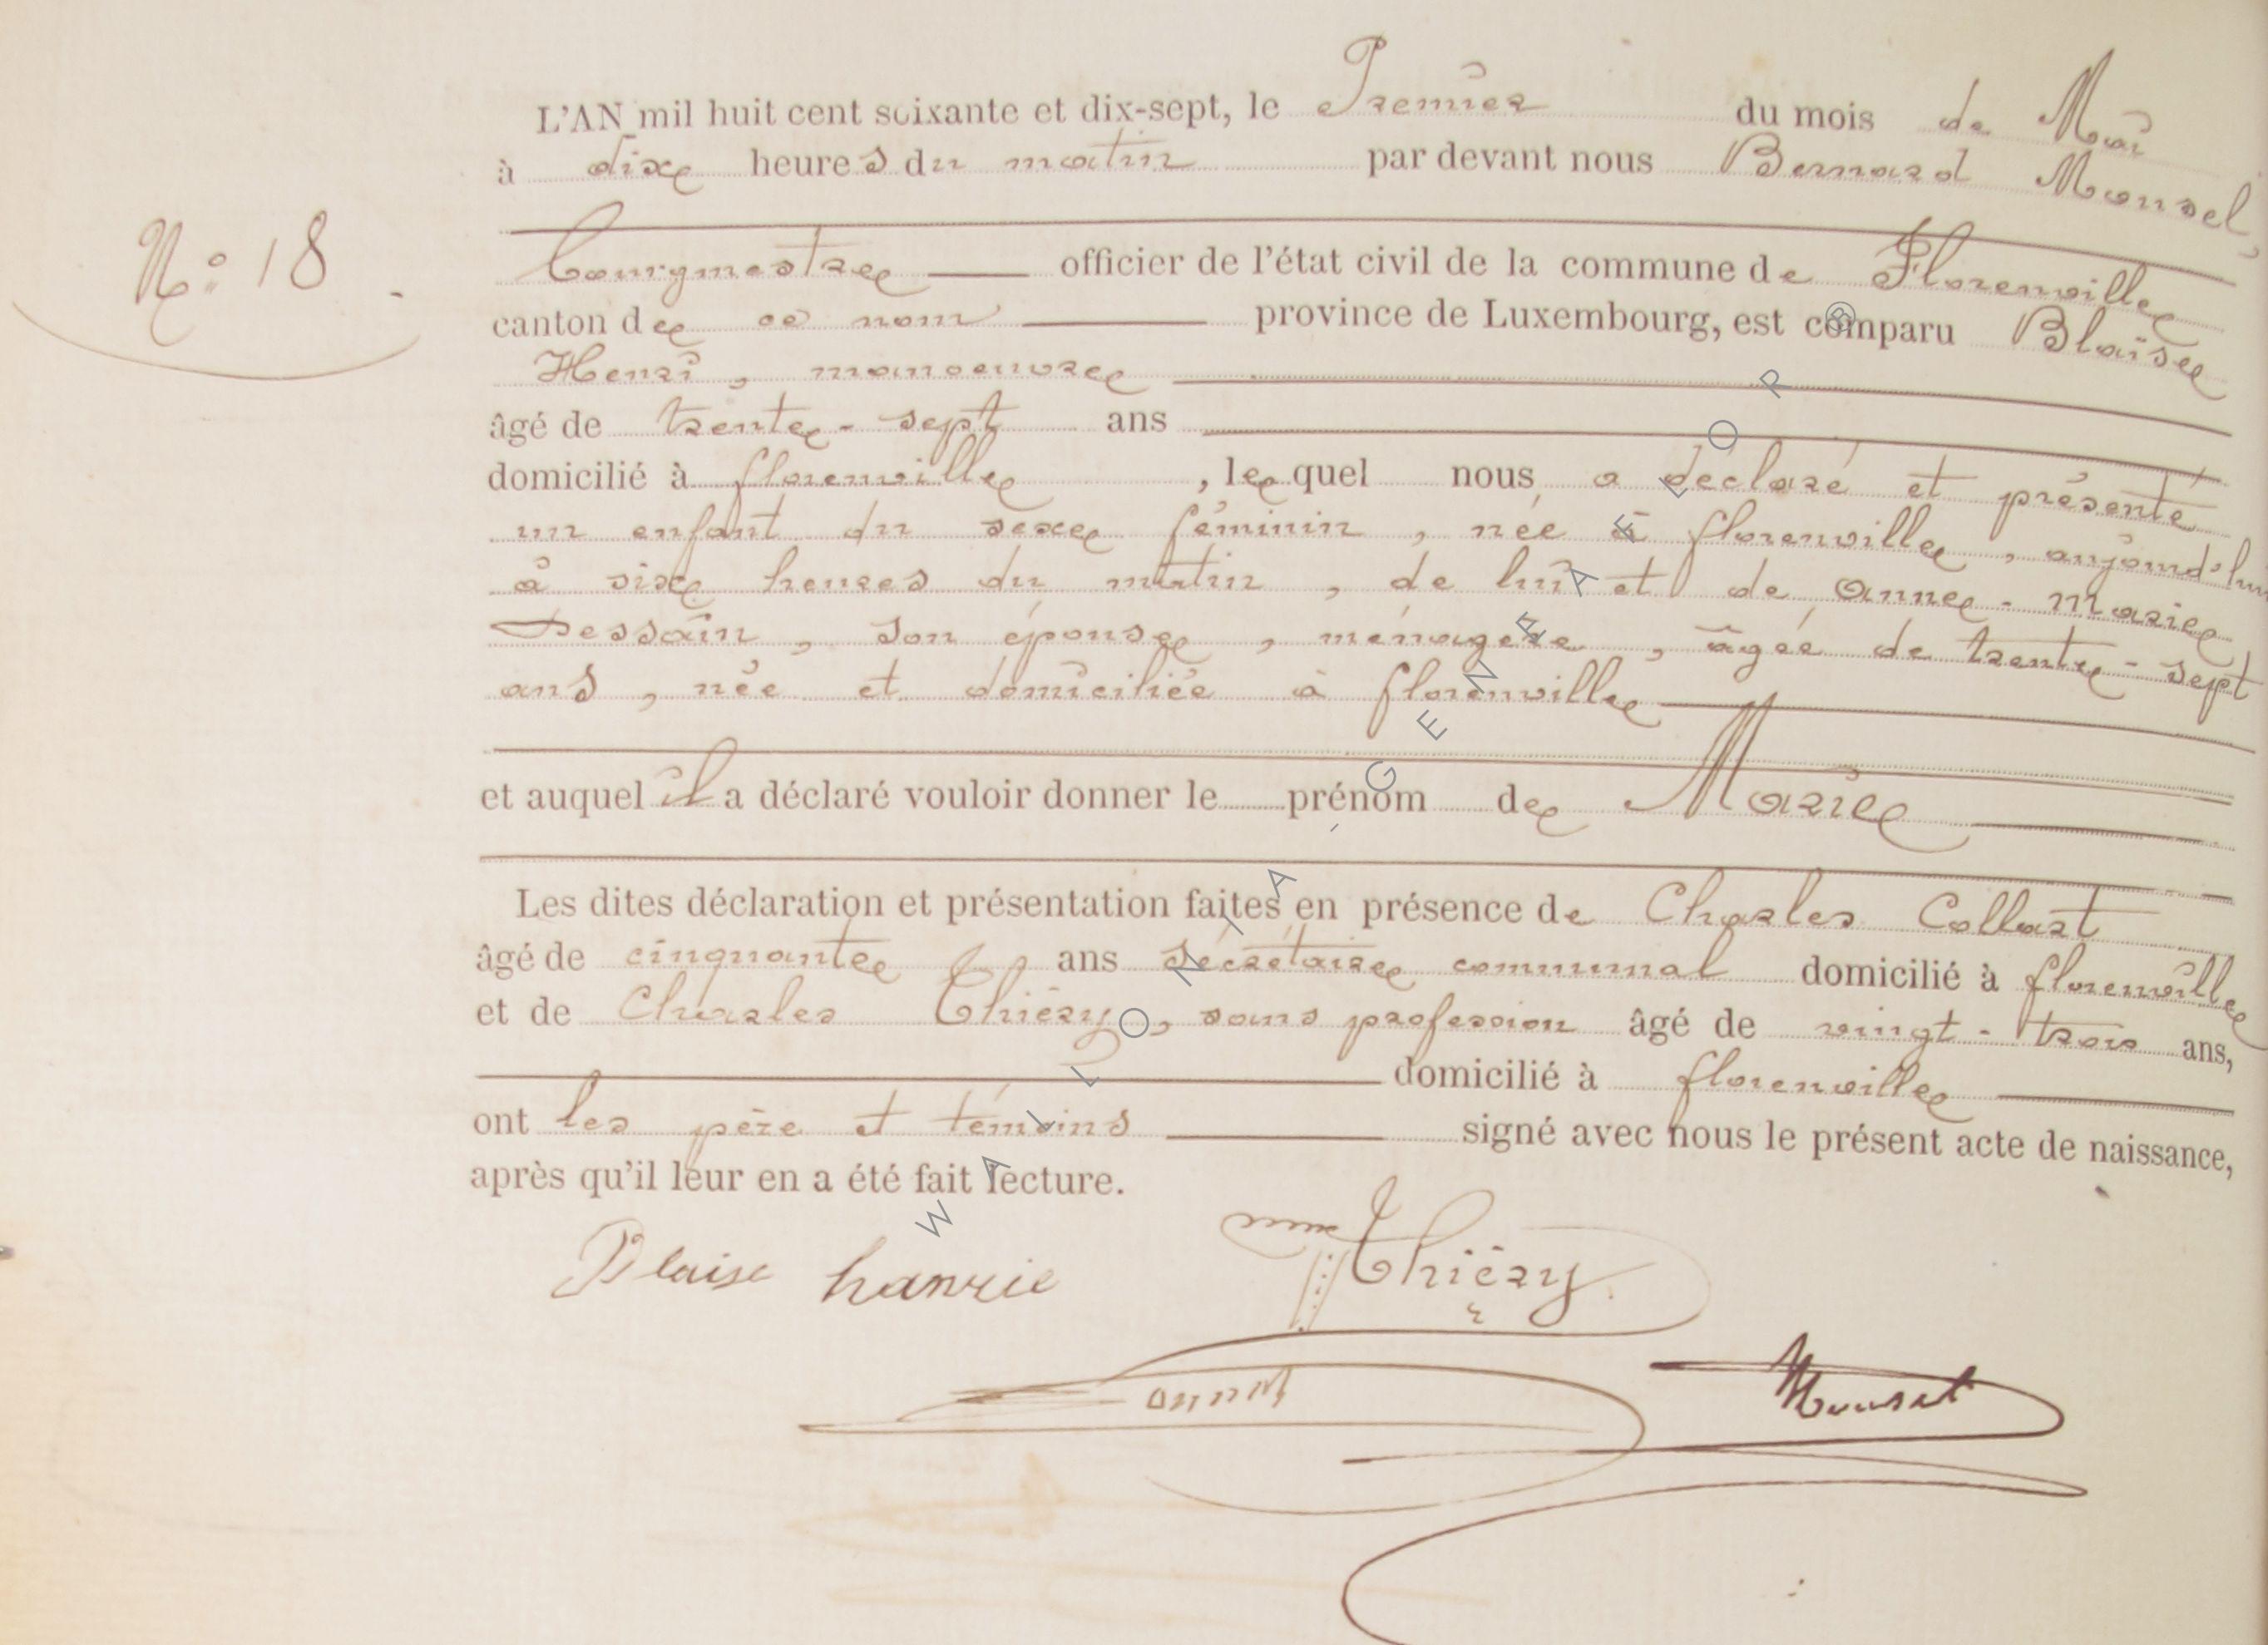 L'AN mil huit cent soixante et dix-sept, le Premier du mois de Mai
à dix heures du matin par devant nous Bernard Mousel,
N° 18.
bourgmestre officier de l'état civil de la commune de Florenville
canton de ce nom province de Luxembourg, est comparu Blaise
Henri, manoeuvre
âgé de trente-sept ans
domicilié à florenville, lequel nous a déclaré et présenté
un enfant du sexe féminin, née à florenville, aujourd'hui
à six heures du matin, de lui et de Anne-Marie
Dessain, son épouse, ménagère, âgée de trente-sept
ans, née et domiciliée à florenville
et auquel il a déclaré vouloir donner le prénom de Marie
Les dites déclaration et présentation faites en présence de Charles Collart
âgé de cinquante ans sécrétaire communal domicilié à florenville
et de Charles Thiéry, sans profession âgé de vingt-trois ans,
domicilié à florenville
ont les père et témoins signé avec nous le présent acte de naissance,
après qu'il leur en a été fait lecture.
Blaise hanrie Thiéry
Mousel
WALLONIA - GENEAFLOR B